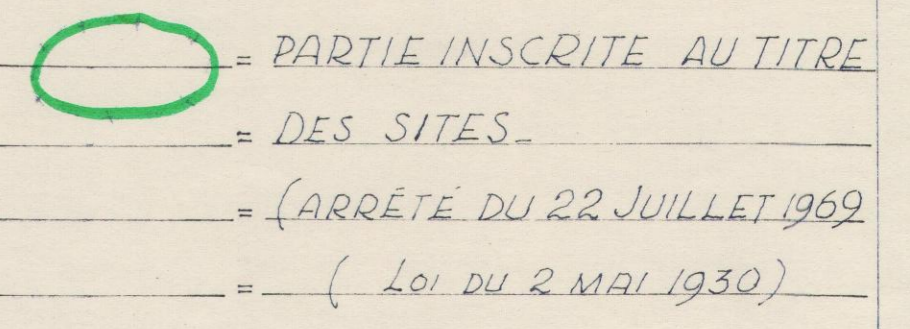 = PARTIE INSCRITE AU TITRE
= DES SITES_
= (ARRÊTÉ DU 22 JUILLET 1969
= ( LOI DU 2 MAI 1930)